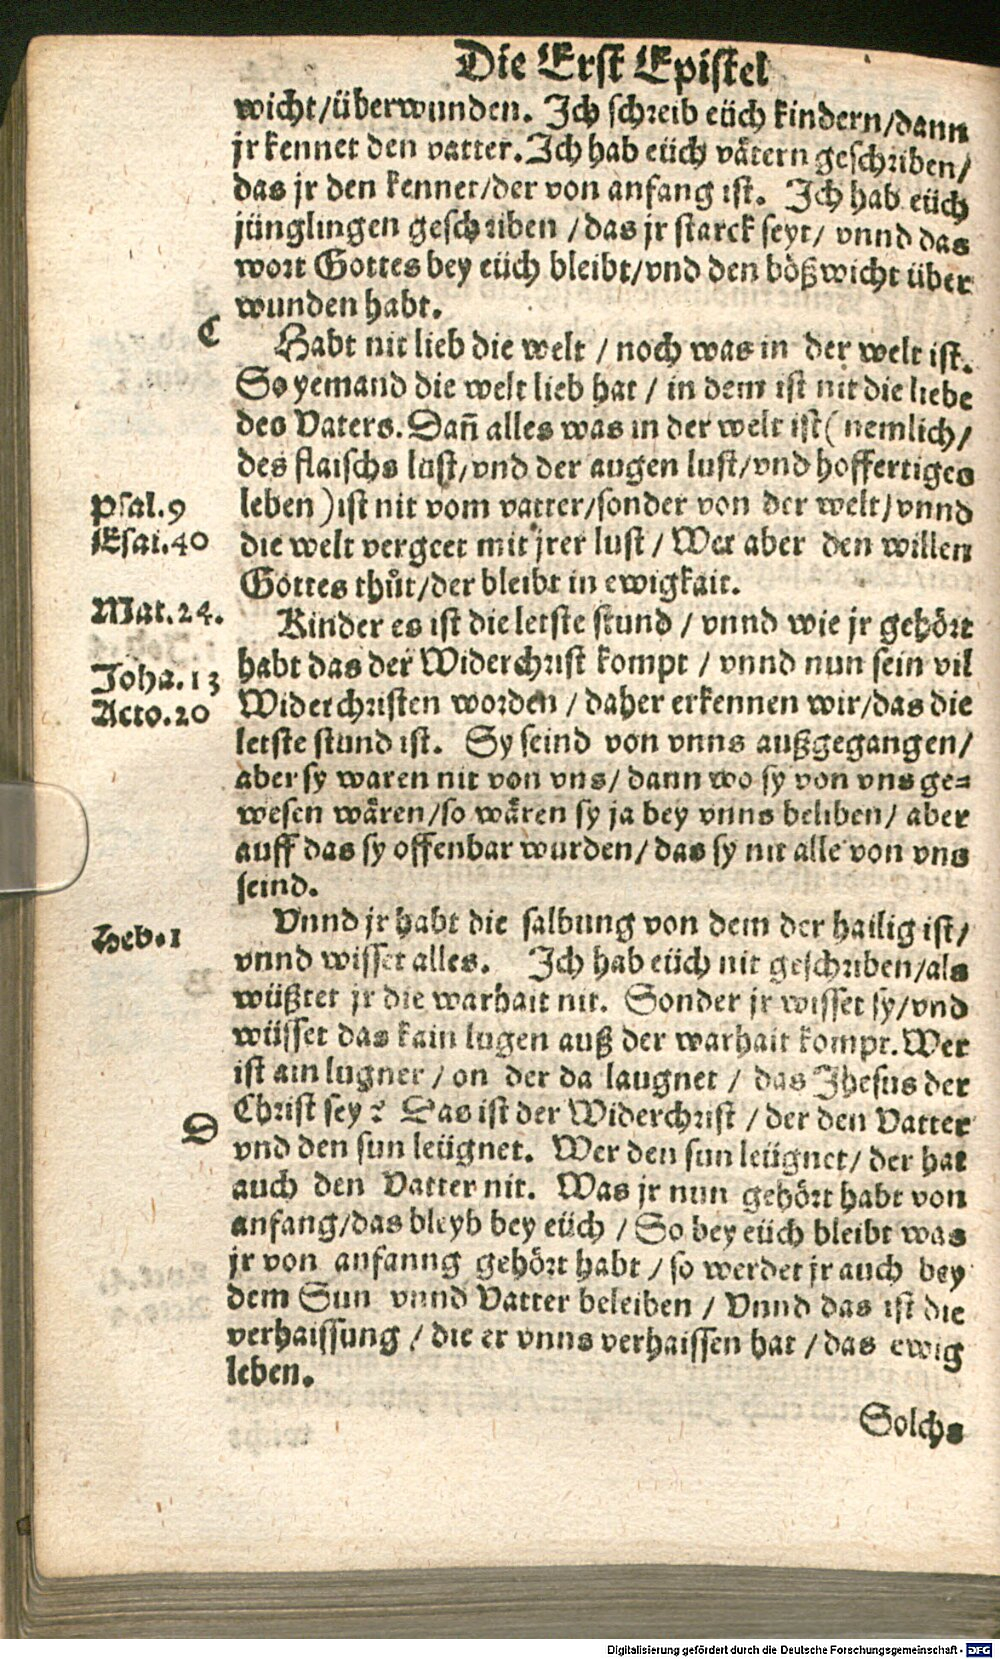 Die Erst Epistel
wicht/überwunden. Ich schreib eüch kindern/dann
jr kennet den vatter. Ich hab eüch vätern geschriben/
das jr den kennet/der von anfang ist. Ich hab eüch
jünglingen geschriben /das jr starck seyt/ vnnd das
wort Gottes bey eüch bleibt/vnd den bößwicht über
wunden habt.
C
Habt nit lieb die welt / noch was in der welt ist.
So yemand die welt lieb hat / in dem ist nit die liebe
des Vaters. Dañ alles was in der welt ist( nemlich/
des flaischs lust/vnd der augen lust/vnd hoffertiges
Psal.9
leben )ist nit vom vatter/sonder von der welt/vnnd
Esai.40
die welt vergeet mit jrer lust / Wer aber den willen
Gottes thůt/der bleibt in ewigkait.
Mat.24.
Kinder es ist die letste stund / vnnd wie jr gehört
habt das der Widerchrist kompt / vnnd nun sein vil
Joha.13
Widerchristen worden / daher erkennen wir/das die
Acto.20
letste stund ist. Sy seind von vnns außgegangen/
aber sy waren nit von vns/ dann wo sy von vns ge=
wesen wären/so wären sy ja bey vnns beliben/ aber
auff das sy offenbar wurden/das sy nit alle von vns
seind.
Heb.1
Vnnd jr habt die salbung von dem der hailig ist/
vnnd wisset alles. Ich hab eüch nit geschriben/als
wüßtet jr die warhait nit. Sonder jr wisset sy/vnd
wüsset das kain lugen auß der warhait kompt. Wer
ist ain lugner / on der da laugnet / das Jhesus der
D
Christ sey? Das ist der Widerchrist / der den Vatter
vnd den sun leügnet. Wer den sun leügnet/ der hat
auch den Vatter nit. Was jr nun gehört habt von
anfang/das bleyb bey eüch / So bey eüch bleibt was
jr von anfanng gehört habt / so werdet jr auch bey
dem Sun vnnd Vatter beleiben / Vnnd das ist die
verhaissung / die er vnns verhaissen hat / das ewig
leben.
Solchs
Digitalisierung gefördert durch die Deutsche Forschungsgemeinschaft - DFG